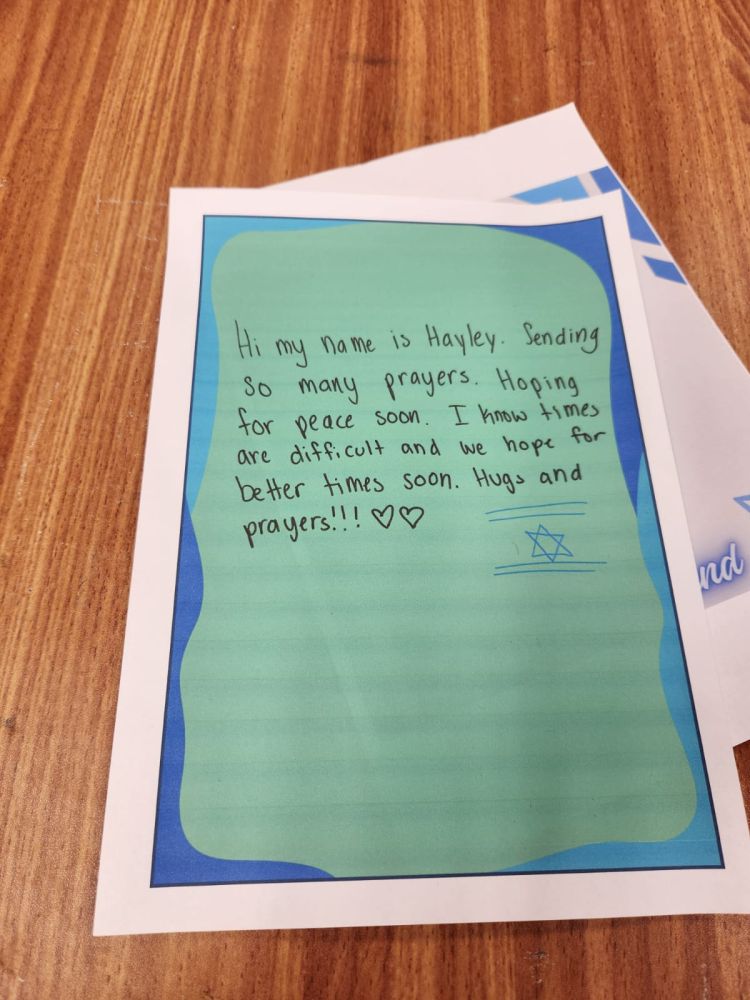 Hi my name is Hayley. Sending
so many prayers. Hoping
for peace soon. I know times
are difficult and we hope for
better times soon. Hugs and
prayers!!! ♡♡
nd